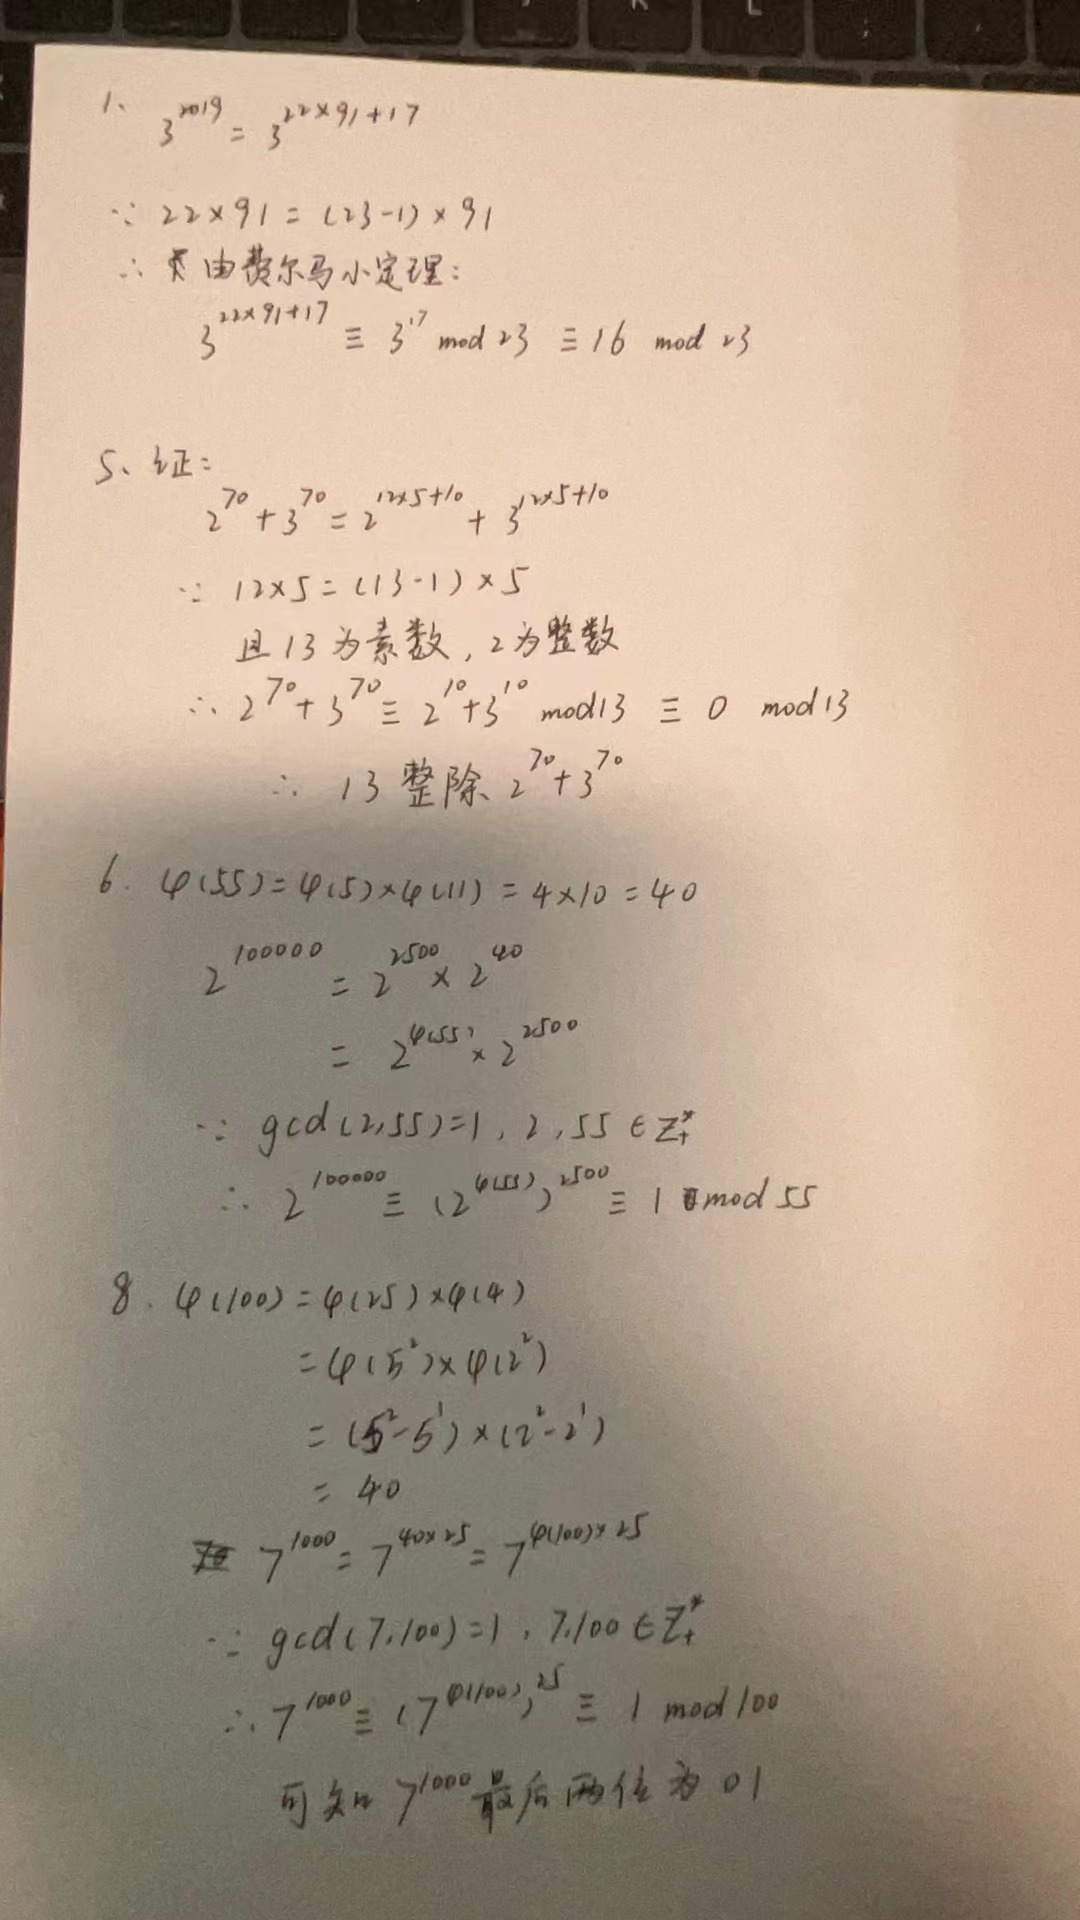 1、 3^2019 = 3^22×91+17
∵ 22×91 = (23-1)×91
∴ 由费尔马小定理:
3^22×91+17 ≡ 3^17 mod 23 ≡ 16 mod 23
5、证:
2^70 + 3^70 = 2^12×5+10 + 3^12×5+10
∵ 12×5 = (13-1)×5
且13为素数, 2为整数
∴ 2^70 + 3^70 ≡ 2^10 + 3^10 mod 13 ≡ 0 mod 13
∴ 13 整除 2^70 + 3^70
6. φ(55) = φ(5)×φ(11) = 4×10 = 40
2^100000 = 2^2500 × 2^40
= 2^φ(55) × 2^2500
∵ gcd(2,55)=1, 2,55 ∈ Z+*
∴ 2^100000 ≡ (2^φ(55))^2500 ≡ 1 mod 55
8. φ(100) = φ(25)×φ(4)
= φ(5²)×φ(2²)
= (5²-5¹)×(2²-2¹)
= 40
7^1000 = 7^40×25 = 7^φ(100)×25
∵ gcd(7,100)=1, 7,100 ∈ Z+*
∴ 7^1000 ≡ (7^φ(100))^25 ≡ 1 mod 100
可知 7^1000 最后两位为 01